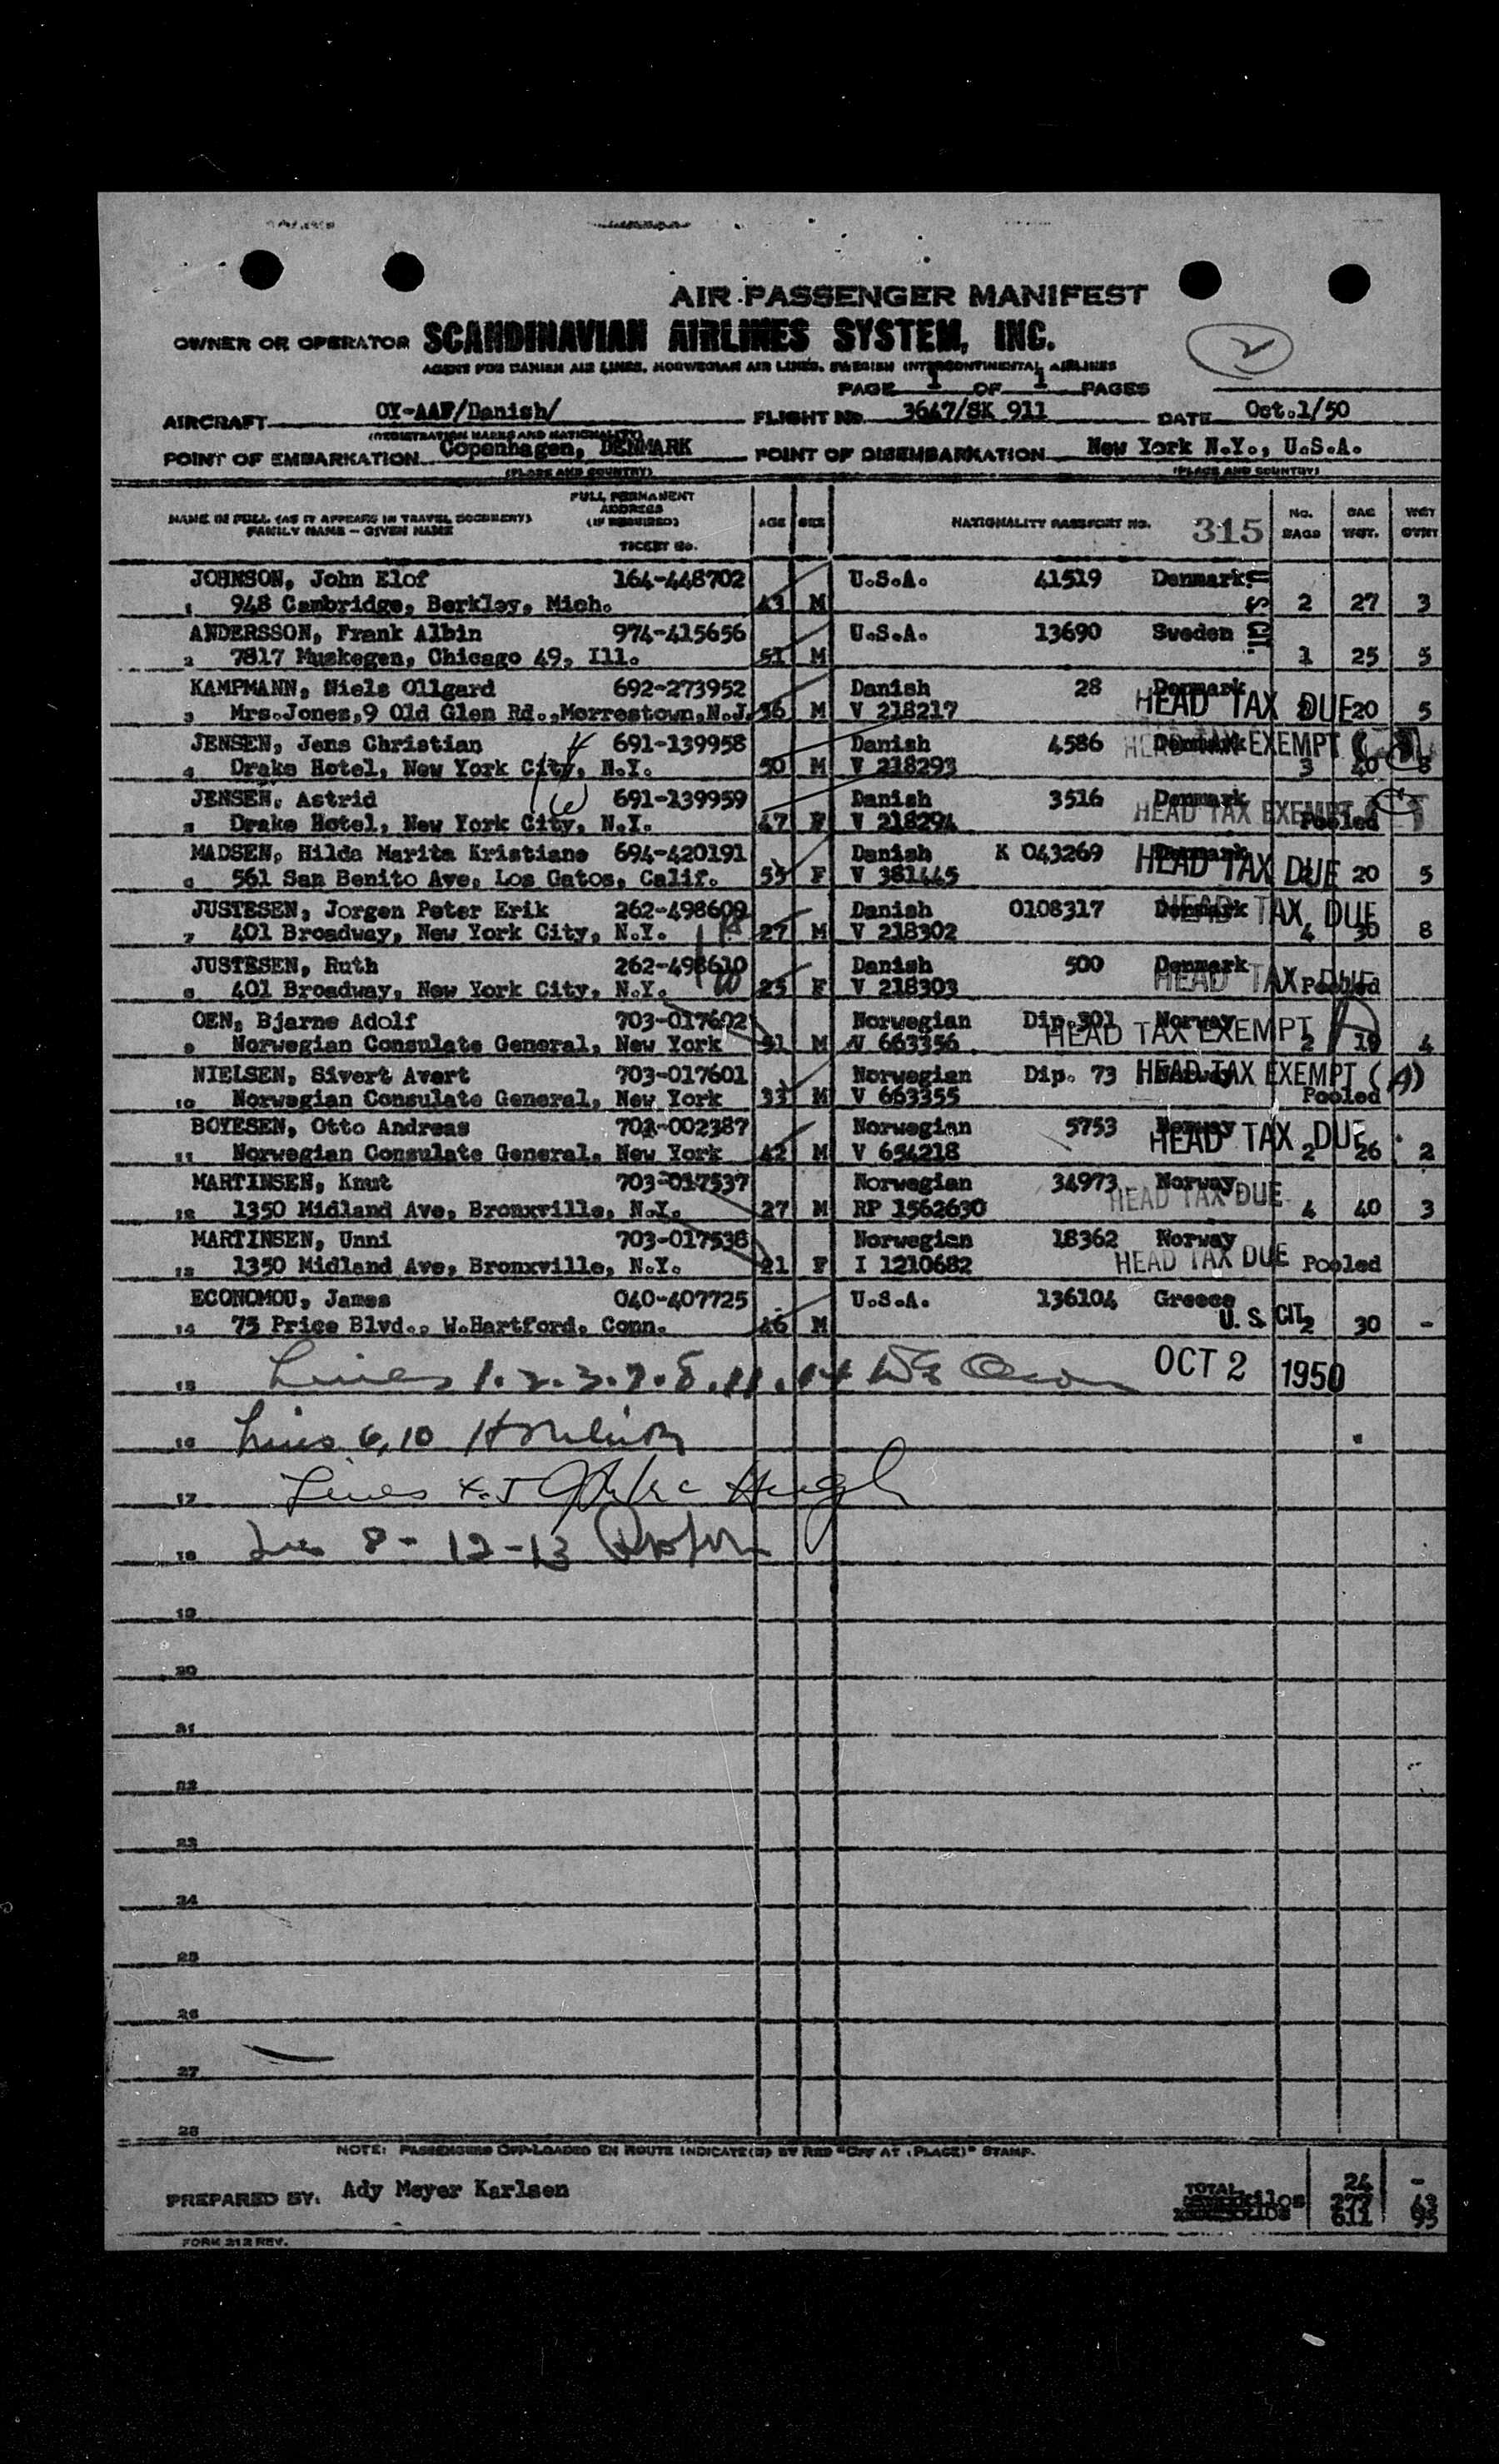 AIR PASSENGER MANIFEST
OWNER OR OPERATOR SCANDINAVIAN AIRLINES SYSTEM, INC.
2
AGENT FOR DANISH AIR LINES, NORWEGIAN AIR LINES, SWEDISH INTERCONTINENTAL AIRLINES
PAGE 1 OF 1 PAGES
AIRCRAFT OY-AAF/Danish/ FLIGHT No. 3647/SK 911 DATE Oct.1/50
(REGISTRATION MARKS AND NATIONALITY)
POINT OF EMBARKATION Copenhagen, DENMARK POINT OF DISEMBARKATION New York N.Y., U.S.A.
(PLACE AND COUNTRY) (PLACE AND COUNTRY)
NAME IN FULL (AS IT APPEARS IN TRAVEL DOCUMENT) FAMILY NAME - GIVEN NAME FULL PERMANENT ADDRESS (IF REQUIRED) TICKET No. AGE SEX NATIONALITY PASSPORT NO. 315 No. BAGS BAG WGT. WGT OVWT
JOHNSON, John Elof 164-448702 U.S.A. 41519 Denmark U S CIT.
1 948 Cambridge, Berkley, Mich. 43 M 2 27 3
ANDERSSON, Frank Albin 974-415656 U.S.A. 13690 Sweden
2 7817 Muskegen, Chicago 49, Ill. 51 M 1 25 5
KAMPMANN, Niels Ollgard 692-273952 Danish 28 Denmark HEAD TAX DUE
3 Mrs.Jones,9 Old Glen Rd.,Morrestown,N.J. 36 M V 218217 20 5
JENSEN, Jens Christian 691-139958 Danish 4586 Denmark HEAD TAX EXEMPT
4 Drake Hotel, New York City, N.Y. 50 M V 218293 3 40 8
JENSEN, Astrid 691-139959 Danish 3516 Denmark HEAD TAX EXEMPT
5 Drake Hotel, New York City, N.Y. 47 F V 218294 Pooled
MADSEN, Hilda Marita Kristiane 694-420191 Danish K 043269 Denmark HEAD TAX DUE
6 561 San Benito Ave, Los Gatos, Calif. 55 F V 381445 20 5
JUSTESEN, Jorgen Peter Erik 262-498609 Danish 0108317 Denmark HEAD TAX DUE
7 401 Broadway, New York City, N.Y. 27 M V 218302 4 30 8
JUSTESEN, Ruth 262-498610 Danish 500 Denmark HEAD TAX DUE
8 401 Broadway, New York City, N.Y. 25 F V 218303 Pooled
OEN, Bjarne Adolf 703-017602 Norwegian Dip.301 Norway HEAD TAX EXEMPT
9 Norwegian Consulate General, New York M V 663356 2 19 4
NIELSEN, Sivert Avert 703-017601 Norwegian Dip. 73 Norway HEAD TAX EXEMPT (A)
10 Norwegian Consulate General, New York 33 M V 663355 Pooled
BOYESEN, Otto Andreas 702-002387 Norwegian 5753 Norway HEAD TAX DUE
11 Norwegian Consulate General, New York 42 M V 654218 2 26 2
MARTINSEN, Knut 703-017537 Norwegian 34973 Norway HEAD TAX DUE
12 1350 Midland Ave, Bronxville, N.Y. 27 M RP 1562630 4 40 3
MARTINSEN, Unni 703-017538 Norwegian 18362 Norway HEAD TAX DUE
13 1350 Midland Ave, Bronxville, N.Y. 21 F I 1210682 Pooled
ECONOMOU, James 040-407725 U.S.A. 136104 Greece U. S. CIT.
14 75 Price Blvd., W.Hartford, Conn. 46 M 2 30 -
15 Lines 1.2.3.7.8.11.14 OCT 2 1950
16 Lines 6,10
17 Lines 4.5
18 8-12-13
19
20
21
22
23
24
25
26
27
28
NOTE: PASSENGERS OFF-LOADED EN ROUTE INDICATE(D) BY RED "OFF AT (PLACE)" STAMP.
PREPARED BY: Ady Meyer Karlsen TOTAL 24 -
kilos 277 43
611 95
FORM 212 REV.